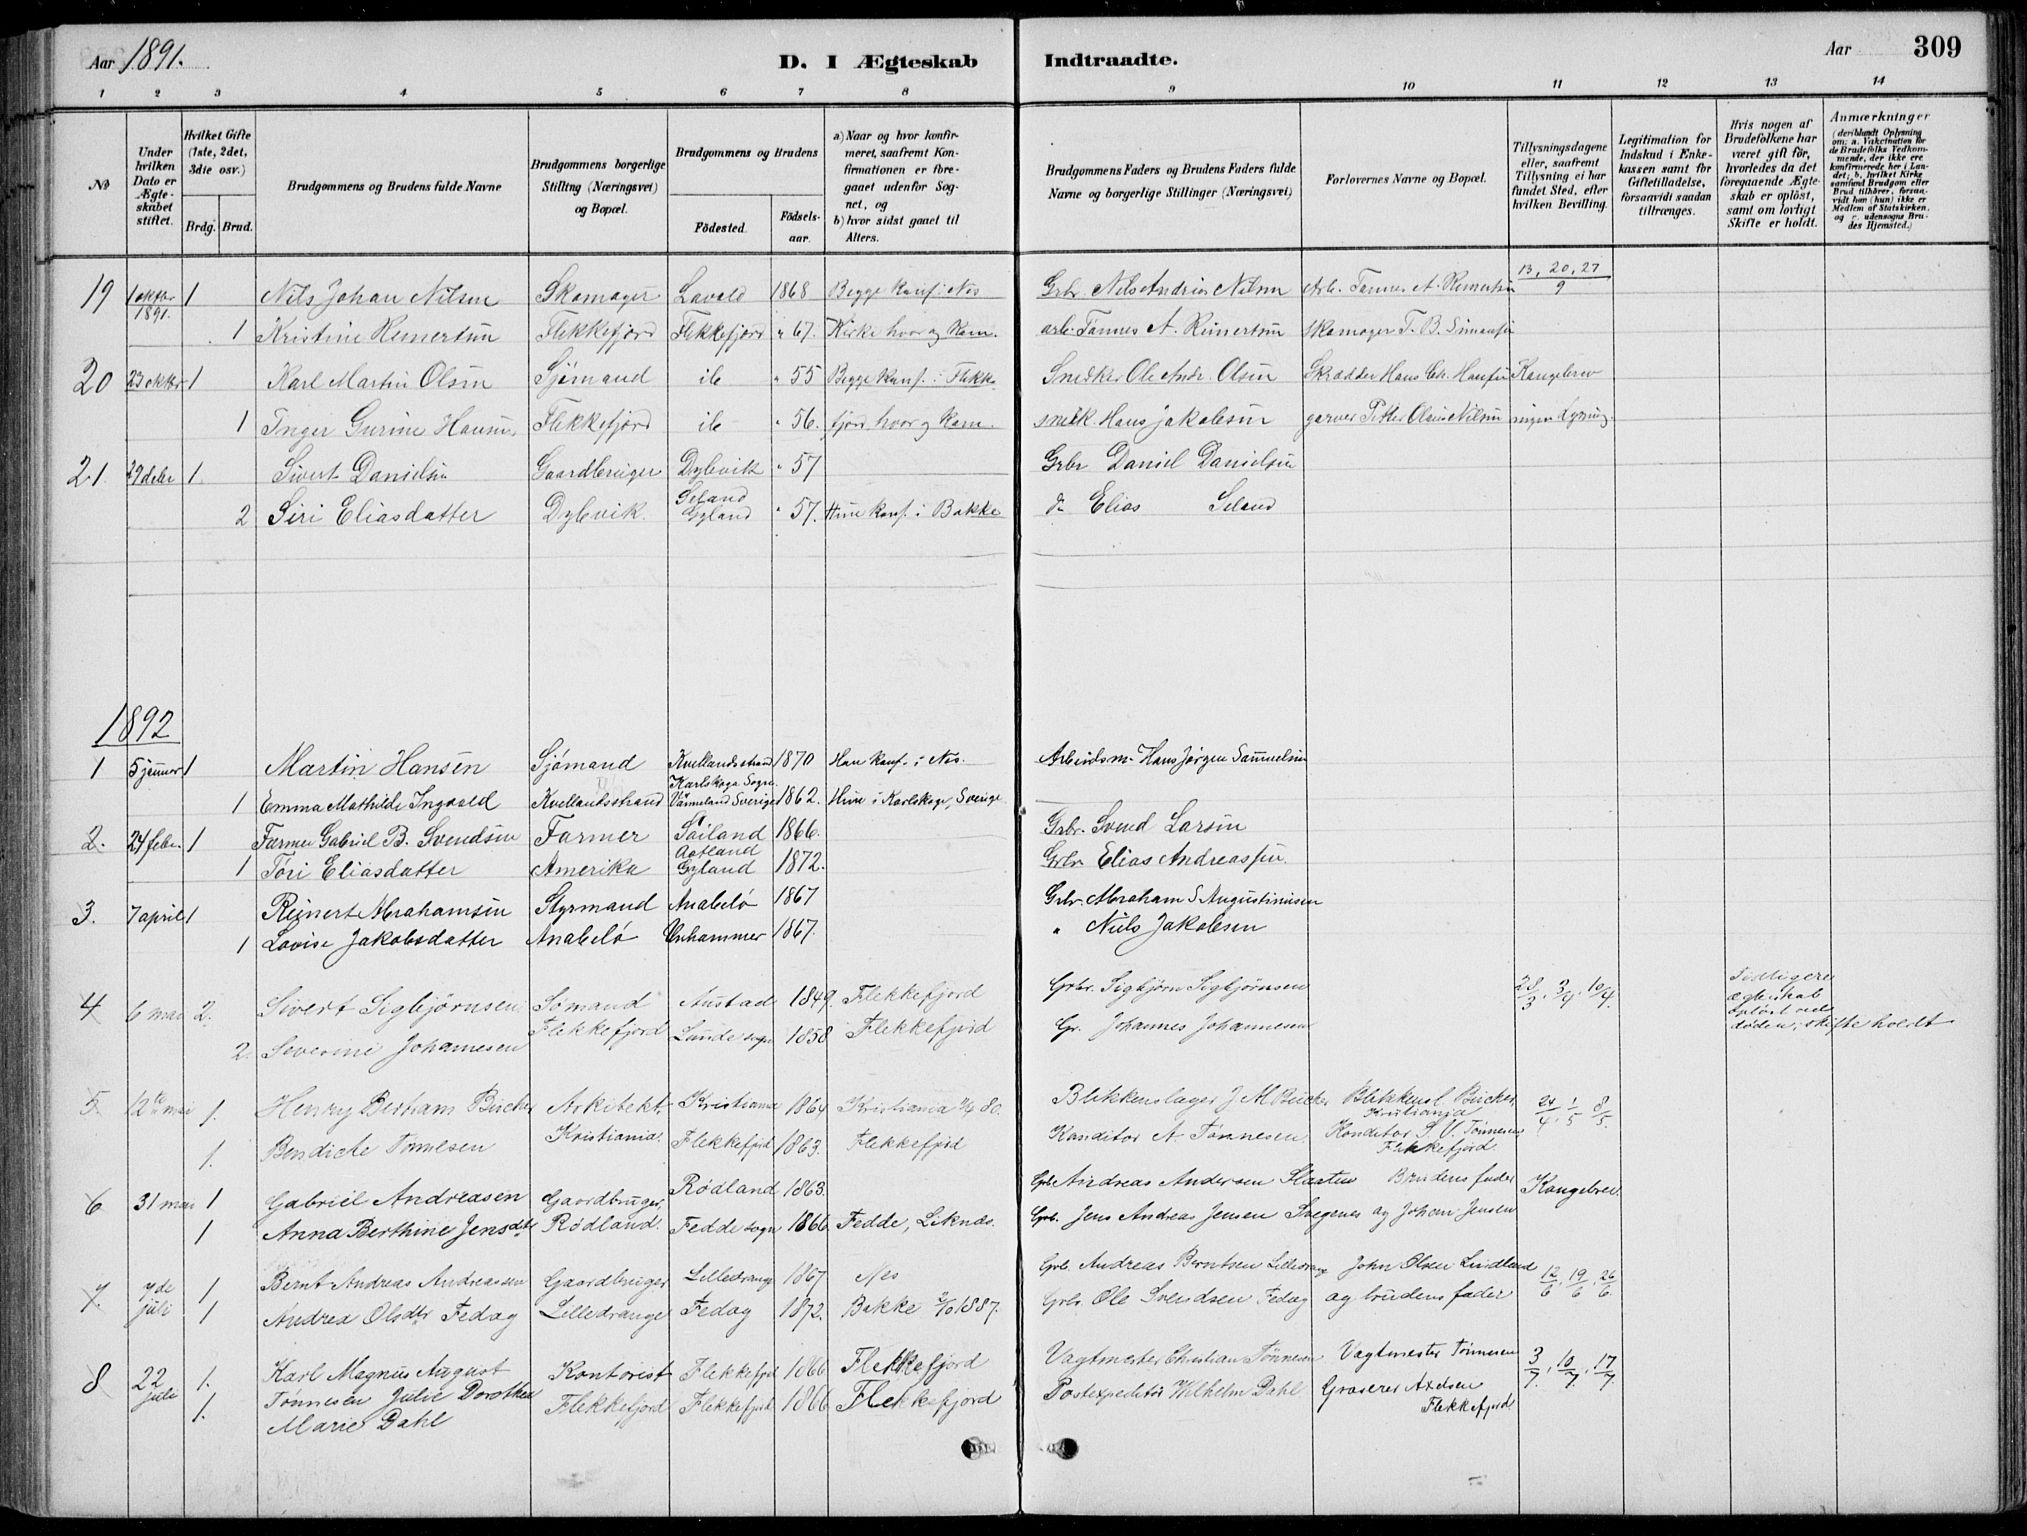 Aar 1891. D. I Ægteskab Indtraadte. Aar 309
1 2 3 4 5 6 7 8 9 10 11 12 13 14
№
Under hvilken Dato er Ægteskabet stiftet.
Hvilket Gifte (1ste, 2det, 3die osv.)
Brdg. Brud.
Brudgommens og Brudens fulde Navne
Brudgommens borgerlige Stilling (Næringsvei) og Bopæl.
Brudgommens og Brudens
Födested. Födselsaar.
a) Naar og hvor konfirmeret, saafremt Konfirmationen er foregaaet udenfor Sognet, og
b) hvor sidst gaaet til Alters.
Brudgommens Faders og Brudens Faders fulde Navne og borgerlige Stillinger (Næringsvei)
Forlovernes Navne og Bopæl.
Tillysningsdagene eller, saafremt Tillysning ei har fundet Sted, efter hvilken Bevilling.
Legitimation for Indskud i Enkekassen samt for Giftetilladelse, forsaavidt saadan tiltrænges.
Hvis nogen af Brudefolkene har været gift för, hvorledes da det foregaaende Ægteskab er oplöst, samt om lovligt Skifte er holdt.
Anmærkninger (deriblandt Oplysning om: a. Vakcination for de Brudefolks Vedkommende, der ikke ere konfirmerede her i Landet; b. hvilket Kirkesamfund Brudgom eller Brud tilhörer, forsaavidt han (hun) ikke er Medlem af Statskirken, og c. udensogns Brudes Hjemsted.)
19 1 oktbr 1891. 1 Nils Johan Nilsen Skomager Lavold 1868 Begge konf. i Nes Grbr. Nils Andrias Nilsen Arb. Tønnes A. Reinertsen 13, 20, 27/9
1 Kristine Reinertsen Flekkefjord Flekkefjord " 67. Kirke hvor og kom. arb. Tønnes A. Reinertsen skomager T. B. Simonsen
20 23 oktbr 1 Karl Martin Olsen Sjømand ib " 55 Begge konf. i Flekke Snedker Ole Andr. Olsen Skrædder Hans Chr. Hansen Kongebrev
1 Inger Gurine Hansen Flekkefjord ib " 56. fjord hvor og kom. snedk. Hans Jakobsen garver Petter Olaus Nilsen ingen Lysning.
21 29 debr 1 Sivert Danielsen Gaardbruger Dybvik " 57 Grbr Daniel Danielsen
2 Siri Eliasdatter Dybvik. Seland Gyland " 57. Hun konf. i Bakke do Elias Seland
1892
1 5 januar 1 Martin Hansen Sjømand Kvellandstrand 1870 Han konf. i Nes. Arbeidsm. Hans Jørgen Samuelsen
1 Emma Mathilde Ingvald Kvellandstrand Karlskoga Sogn Värmeland Sverige 1862. Hun i Karlskoga, Sverige
2. 24 febr. 1 Farmer Gabriel B. Svendsen Farmer Seiland 1866. Grbr. Svend Larsen
1 Tøri Eliasdatter Amerika Aatland Gyland 1872. Grbr Elias Andreassen.
3. 7 april 1 Reinert Abrahamsen Styrmand Anabelø 1867 Grbr. Abraham S Augustinusen
1 Lovise Jakobsdatter Anabelø Unhammer 1867. " Niels Jakobsen
4 6 mai 2. Sivert Sigbjørnsen Sømand Austad 1849. Flekkefjord Grbr. Sigbjørn Sigbjørnsen 28/3. 3/4. 10/4. Tidligere ægteskab opløst ved døden; skifte holdt
2. Severine Johannesen Flekkefjord Lunde sogn 1858 Flekkefjord Gr. Johannes Johannesen
5. 12te mai 1. Henry Bertram Bucher Arkitekt Kristiania 1864 Kristiania 80. Blikkenslager J M Bucher Blikkensl. Bucher, Kristiania 24/4. 1/5 8/5.
1. Bendicte Tønnesen Kristiania. Flekkefjord 1863. Flekkefjord Konditor A. Tønnesen Konditor S. V. Tønnesen Flekkefjord.
6 31 mai 1 Gabriel Andreasen Gaardbruger, Rødland 1863. Grbr Andreas Andersen Brudens fader Kongebrev.
1 Anna Berthine Jensdtr Rødland. Fedde sogn 1866. Fedde, Liknæs. Grb. Jens Andreas Jensen og Johan Jensen
7. 7de juli 1 Bernt Andreas Andreassen Gaardbruger Lilledrange 1867. Nes Grb. Andreas Berntsen Lilledrange John Olsen Lindland 12/6. 19/6. 26/6.
1 Andrea Olsdtr Fedog Lilledrange Fedog 1872. Bakke 2/10 1887. Grbr. Ole Svendsen Fedog og brudens fader
8 22 juli 1. Karl Magnus August Kontorist Flekkefjord 1866 Flekkefjord Vagtmester Christian Tønnesen Vagtmester Tønnesen 3/7. 10/7. 17/7.
1. Tønnesen Julie Dorothea Flekkefjord Flekkefjord 1866 Flekkefjord Postexpeditør Vilhelm Dahl Groserer Axelsen
Marie Dahl Flekkefjord.